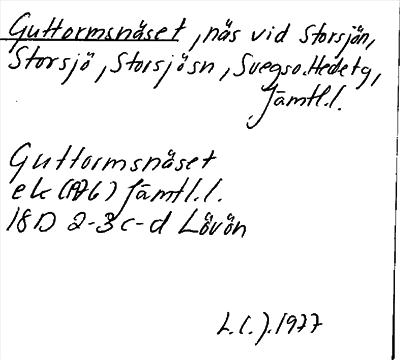 Guttormsnäset, näs vid Storsjön,
Storsjö, Storsjösn, Svegso.Hedetg,
Jämtl.l.
Guttormsnäset
ek (A76) Jämtl.l.
18D 2-3 c-d Lövön
1977